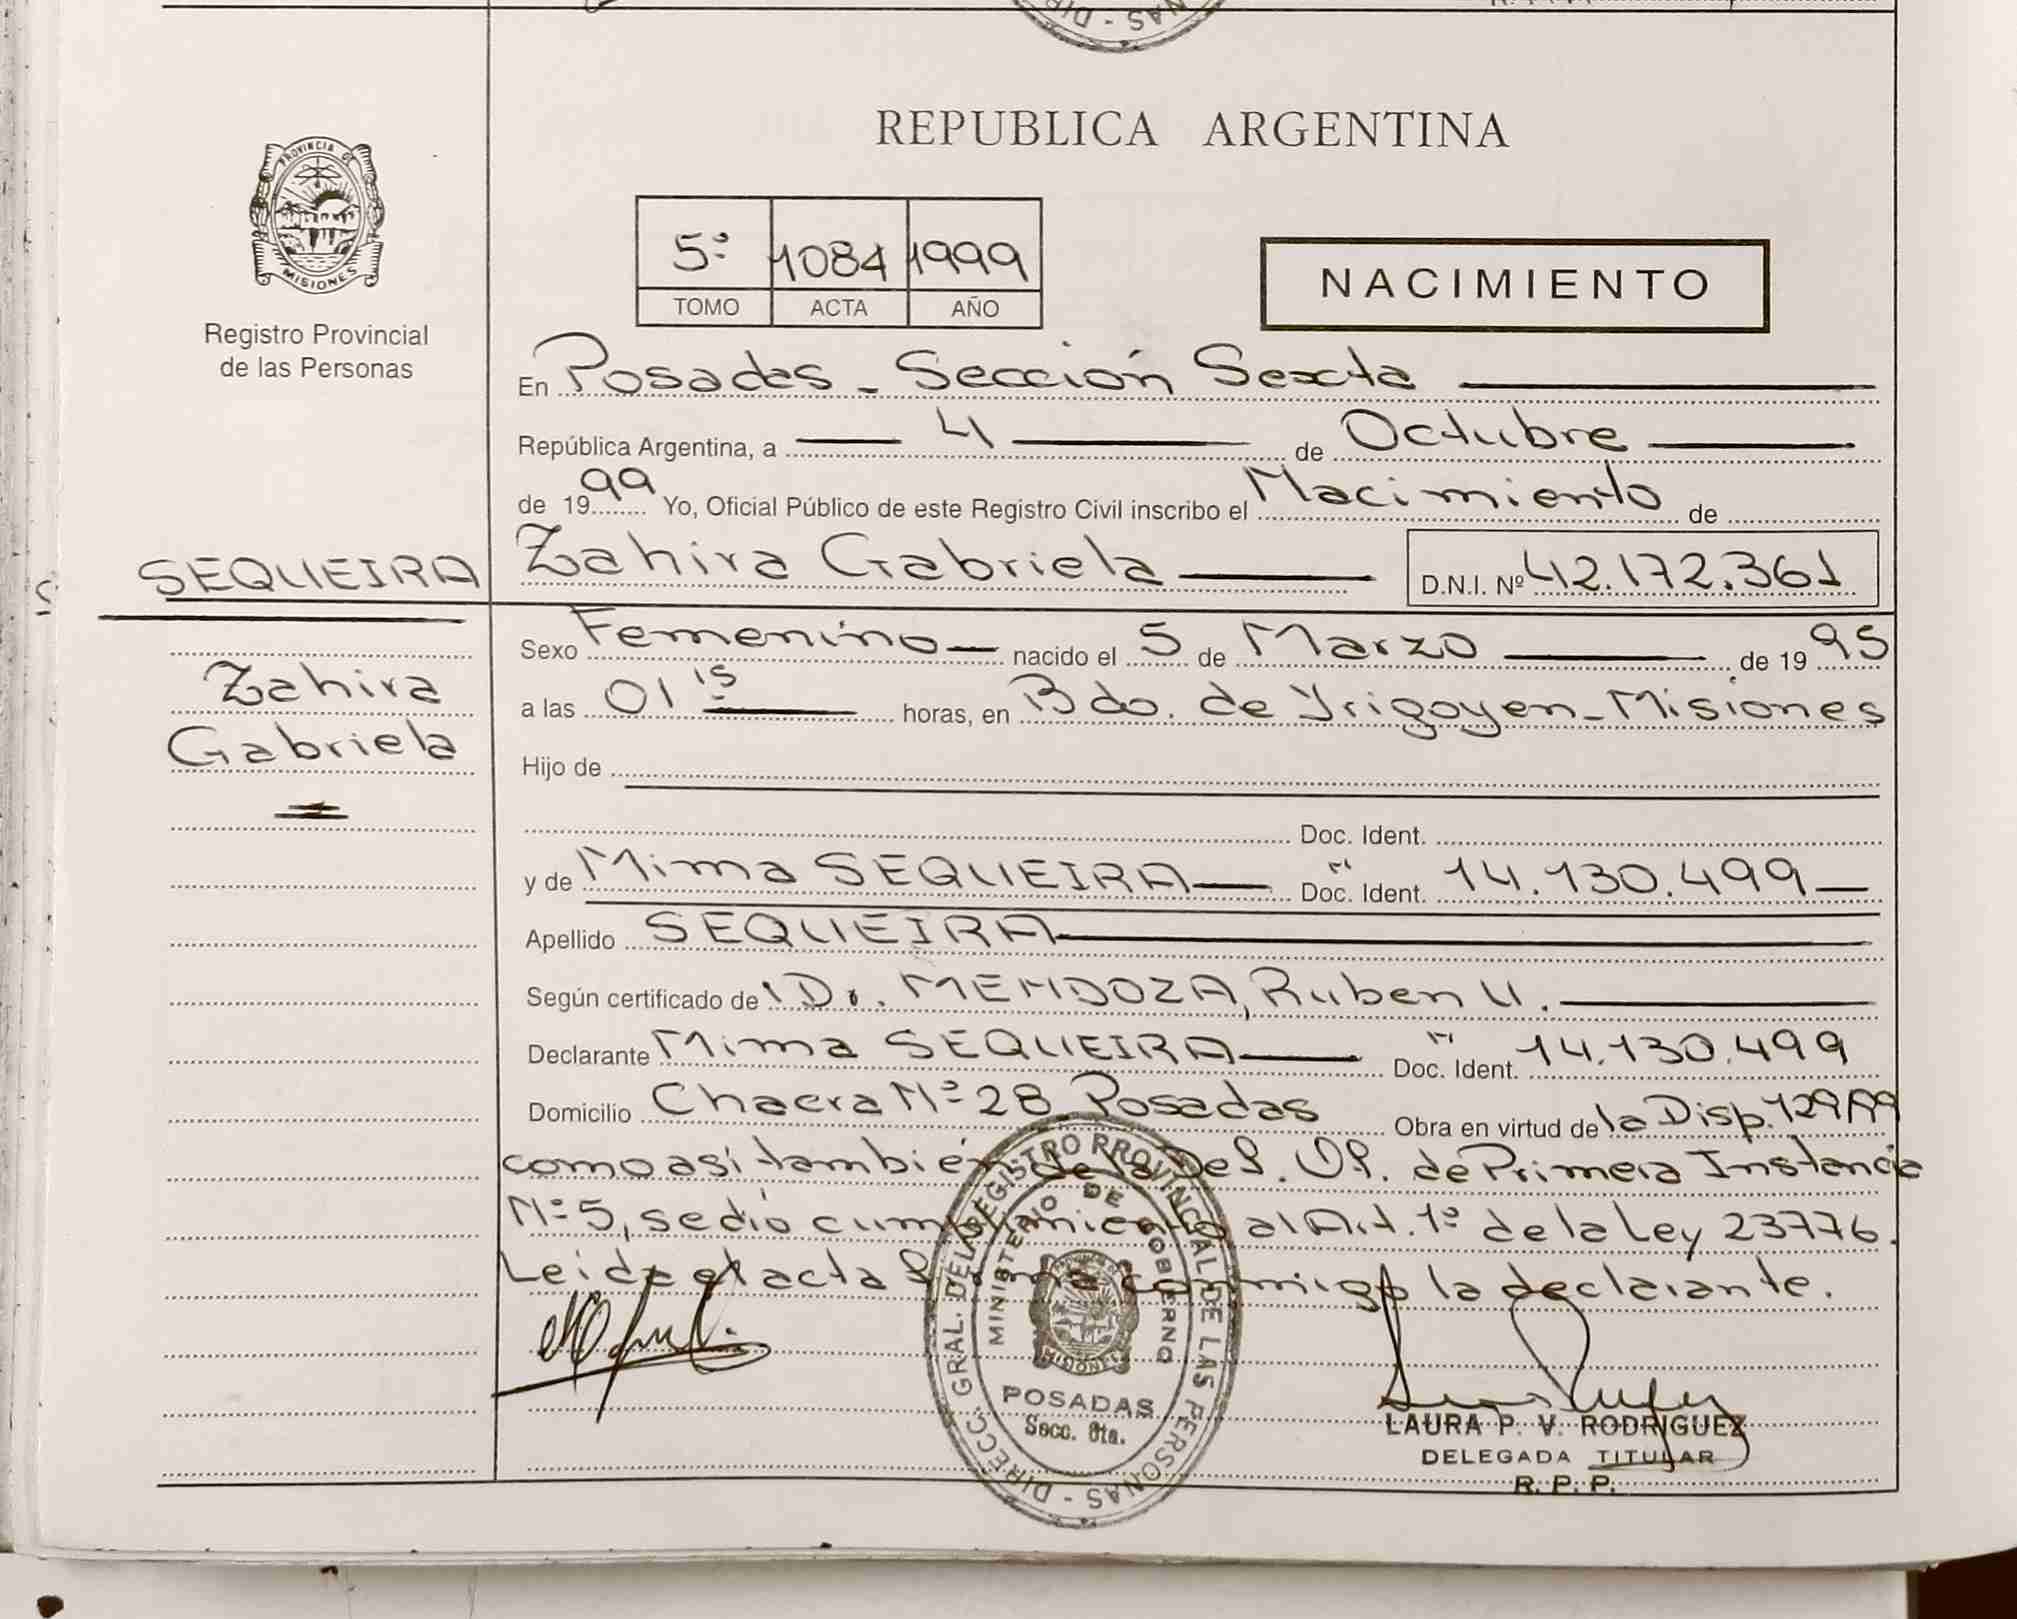 REPUBLICA ARGENTINA
PROVINCIA DE
MISIONES
Registro Provincial
de las Personas
5º 1084 1999
TOMO ACTA AÑO
NACIMIENTO
En Posadas - Sección Sexta
República Argentina, a 4 de Octubre
de 1999 Yo, Oficial Público de este Registro Civil inscribo el Nacimiento de
SEQUEIRA
Zahira Gabriela D.N.I. Nº 42.172.361
Zahira
Gabriela
Sexo Femenino nacido el 5 de Marzo de 1995
a las 01 15 horas, en Bdo. de Yrigoyen - Misiones
Hijo de
Doc. Ident.
y de Mima SEQUEIRA Doc. Ident. 14.130.499
Apellido SEQUEIRA
Según certificado de Dr. MENDOZA, Ruben U.
Declarante Mima SEQUEIRA Doc. Ident. 14.130.499
Domicilio Chacra Nº 28 Posadas Obra en virtud de la Disp. 129/99
como así también de la Def. Of. de Primera Instancia
Nº 5, se dió cumplimiento al Art. 1º de la Ley 23776.
Leida el acta firma conmigo la declarante.
DIRECC. GRAL. DEL REGISTRO PROVINCIAL DE LAS PERSONAS
MINISTERIO DE GOBIERNO
POSADAS
Secc. 6ta.
LAURA P. V. RODRIGUEZ
DELEGADA TITULAR
R. P. P.